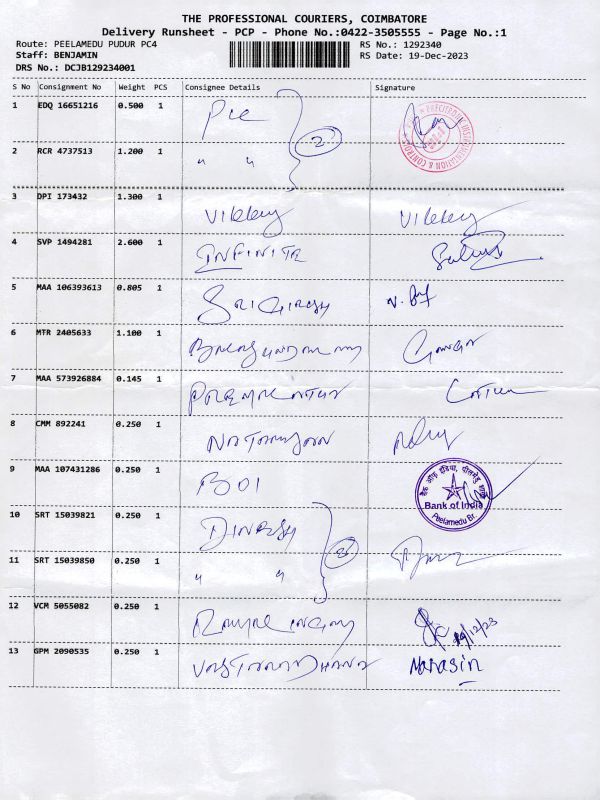 THE PROFESSIONAL COURIERS, COIMBATORE
Delivery Runsheet - PCP - Phone No.:0422-3505555 - Page No.:1
Route: PEELAMEDU PUDUR PC4
Staff: BENJAMIN
DRS No.: DCJB129234001
RS No.: 1292340
RS Date: 19-Dec-2023
S No Consignment No Weight PCS Consignee Details Signature
1 EDQ 16651216 0.500 1 PIE
2
2 RCR 4737513 1.200 1 " "
3 DPI 173432 1.300 1 VIKKEY VIKKEY
4 SVP 1494281 2.600 1 INFINITE
5 MAA 106393613 0.805 1 SRI GIRESH
6 MTR 2405633 1.100 1
7 MAA 573926884 0.145 1
8 CMM 892241 0.250 1 NATARAJAN
9 MAA 107431286 0.250 1 BOI
बैंक ऑफ इंडिया,
Bank of India
Peelamedu Br.
10 SRT 15039821 0.250 1 DINESH
11 SRT 15039850 0.250 1 " "
12 VCM 5055082 0.250 1
19/12/23
13 GPM 2090535 0.250 1 Narasin